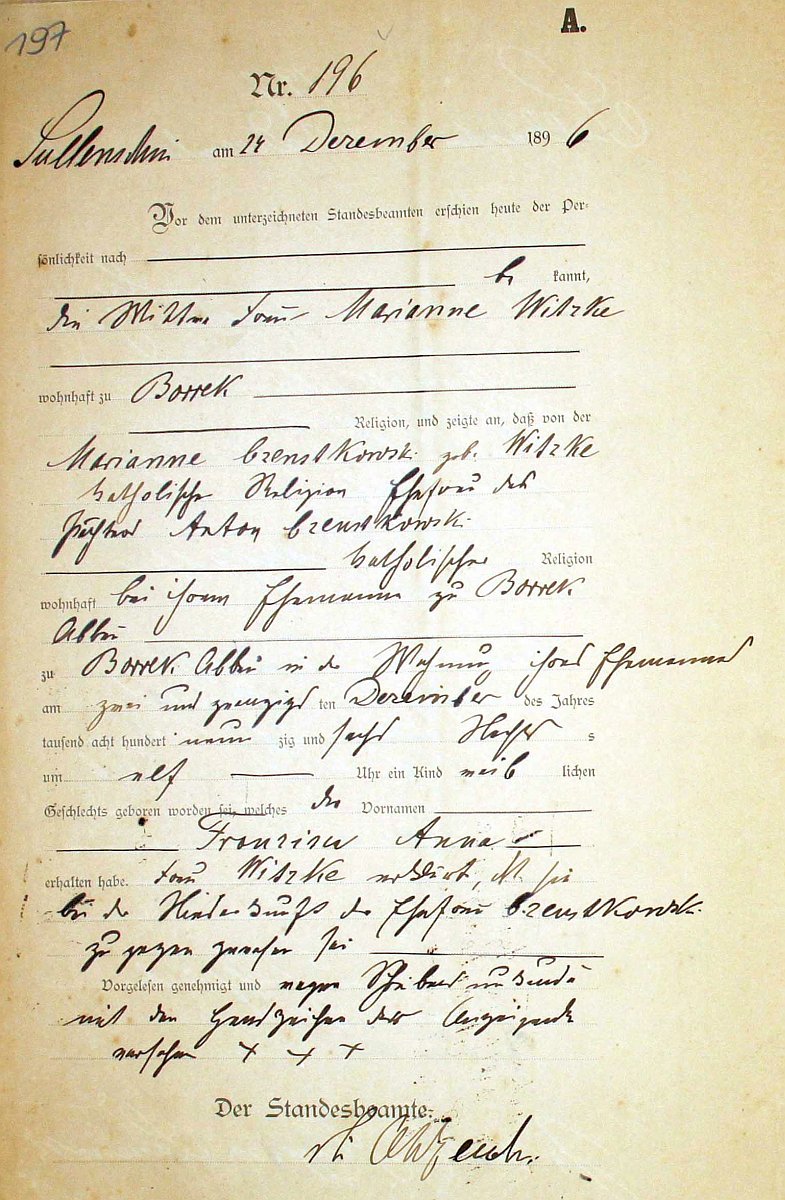 197
A.
Nr. 196
Sullenschin am 24 Dezember 1896
Vor dem unterzeichneten Standesbeamten erschien heute der Per-
sönlichkeit nach
be kannt,
die Wittwe Frau Marianne Witzke
wohnhaft zu Borrek
Religion, und zeigte an, daß von der
Marianne Czenstkowski geb. Witzke
katholischer Religion Ehefrau des
Pächters Anton Czenstkowski
katholischer Religion
wohnhaft bei ihrem Ehemanne zu Borrek
Abbau
zu Borrek Abbau in der Wohnung ihres Ehemannes
am zwei und zwanzigsten Dezember des Jahres
tausend acht hundert neun zig und sechs s
um elf Uhr ein Kind weib lichen
Geschlechts geboren worden sei, welches die Vornamen
Anna
erhalten habe. Frau Witzke erklärt, daß sie
bei der Niederkunft der Ehefrau Czenstkowski
zugegen gewesen sei
Vorgelesen genehmigt und wegen Schreibensunkunde
mit den Handzeichen der Anzeigende
versehen + + +
Der Standesbeamte.